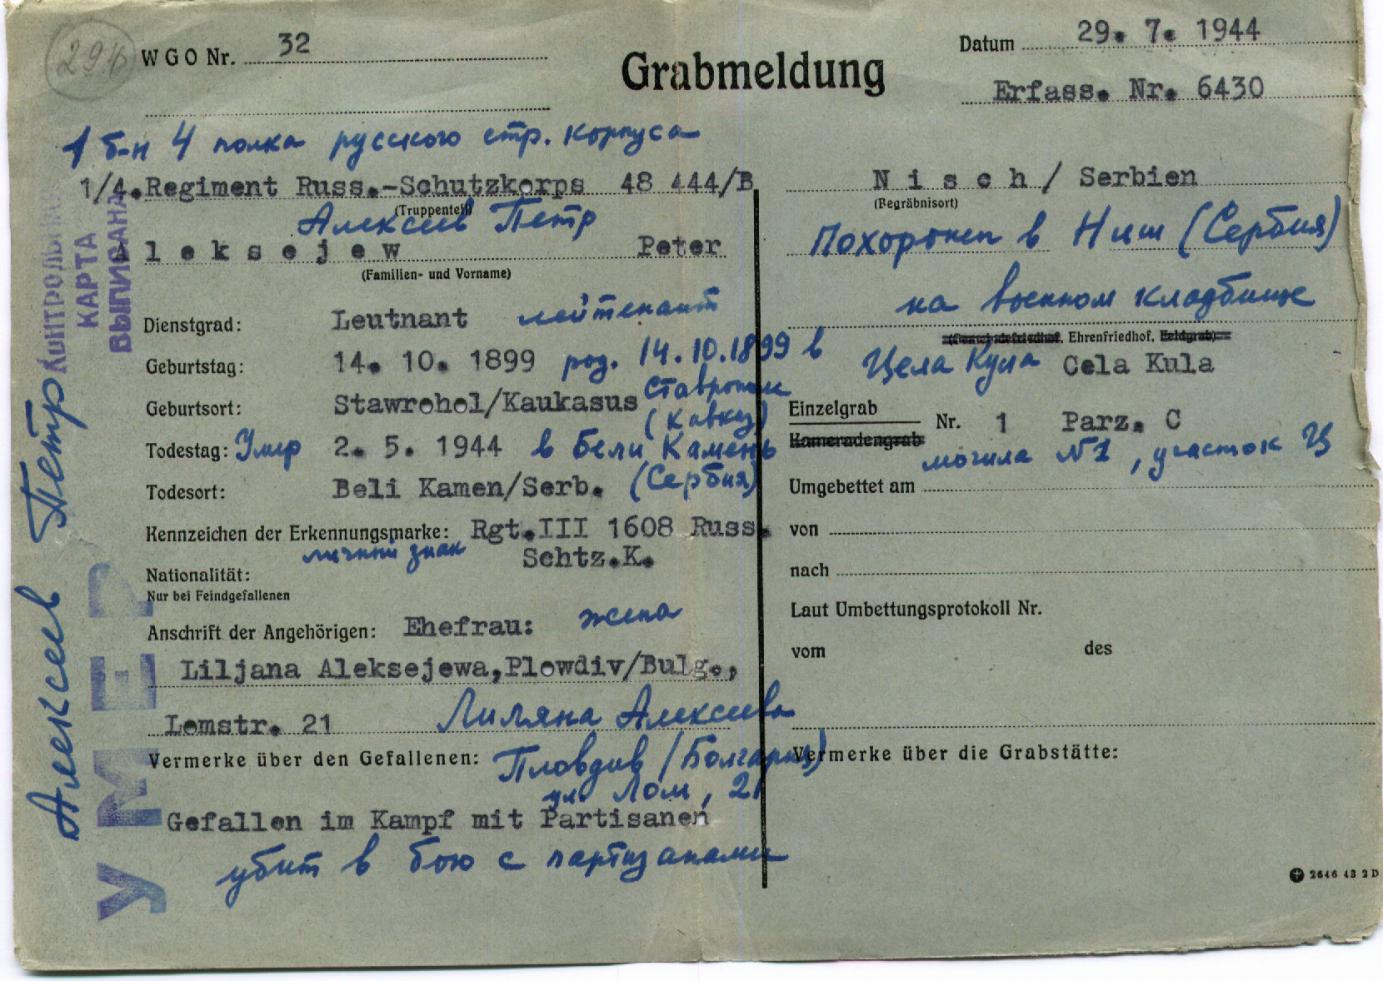 WGO Nr. 32
Grabmeldung
Datum 29. 7. 1944
Erfass. Nr. 6430
1 б-н 4 полка русского стр. корпуса
1/4.Regiment Russ.-Schutzkorps 48 444/B
(Truppenteil)
Алексеев Петр
Aleksejew Peter
(Familien- und Vorname)
Dienstgrad: Leutnant лейтенант
Geburtstag: 14. 10. 1899 род. 14.10.1899 в
Geburtsort: Stawrohol/Kaukasus Ставрополи
(Кавказ)
Todestag: Умер 2. 5. 1944 в Бели Камень
Todesort: Beli Kamen/Serb. (Сербия)
Kennzeichen der Erkennungsmarke: Rgt.III 1608 Russ.
личный знак Schtz.K.
Nationalität:
Nur bei Feindgefallenen
Anschrift der Angehörigen: Ehefrau: жена
Liljana Aleksejewa,Plowdiv/Bulg.,
Lomstr. 21 Лиляна Алексеева
Vermerke über den Gefallenen: Пловдив (Болгария)
ул. Лом, 21
Gefallen im Kampf mit Partisanen
убит в бою с партизанами
Nisch/ Serbien
(Begräbnisort)
Похоронен в Ниш (Сербия)
на военном кладбище
(Gemeindefriedhof, Ehrenfriedhof, Feldgrab)
Цела Кула Cela Kula
Einzelgrab Nr. 1 Parz. C
Kameradengrab
могила №1, участок Ц
Umgebettet am
von
nach
Laut Umbettungsprotokoll Nr.
vom des
Vermerke über die Grabstätte:
2646 43 2 D
КОНТРОЛЬНАЯ
КАРТА
ВЫПИСАНА
Алексеев Петр
УМЕР